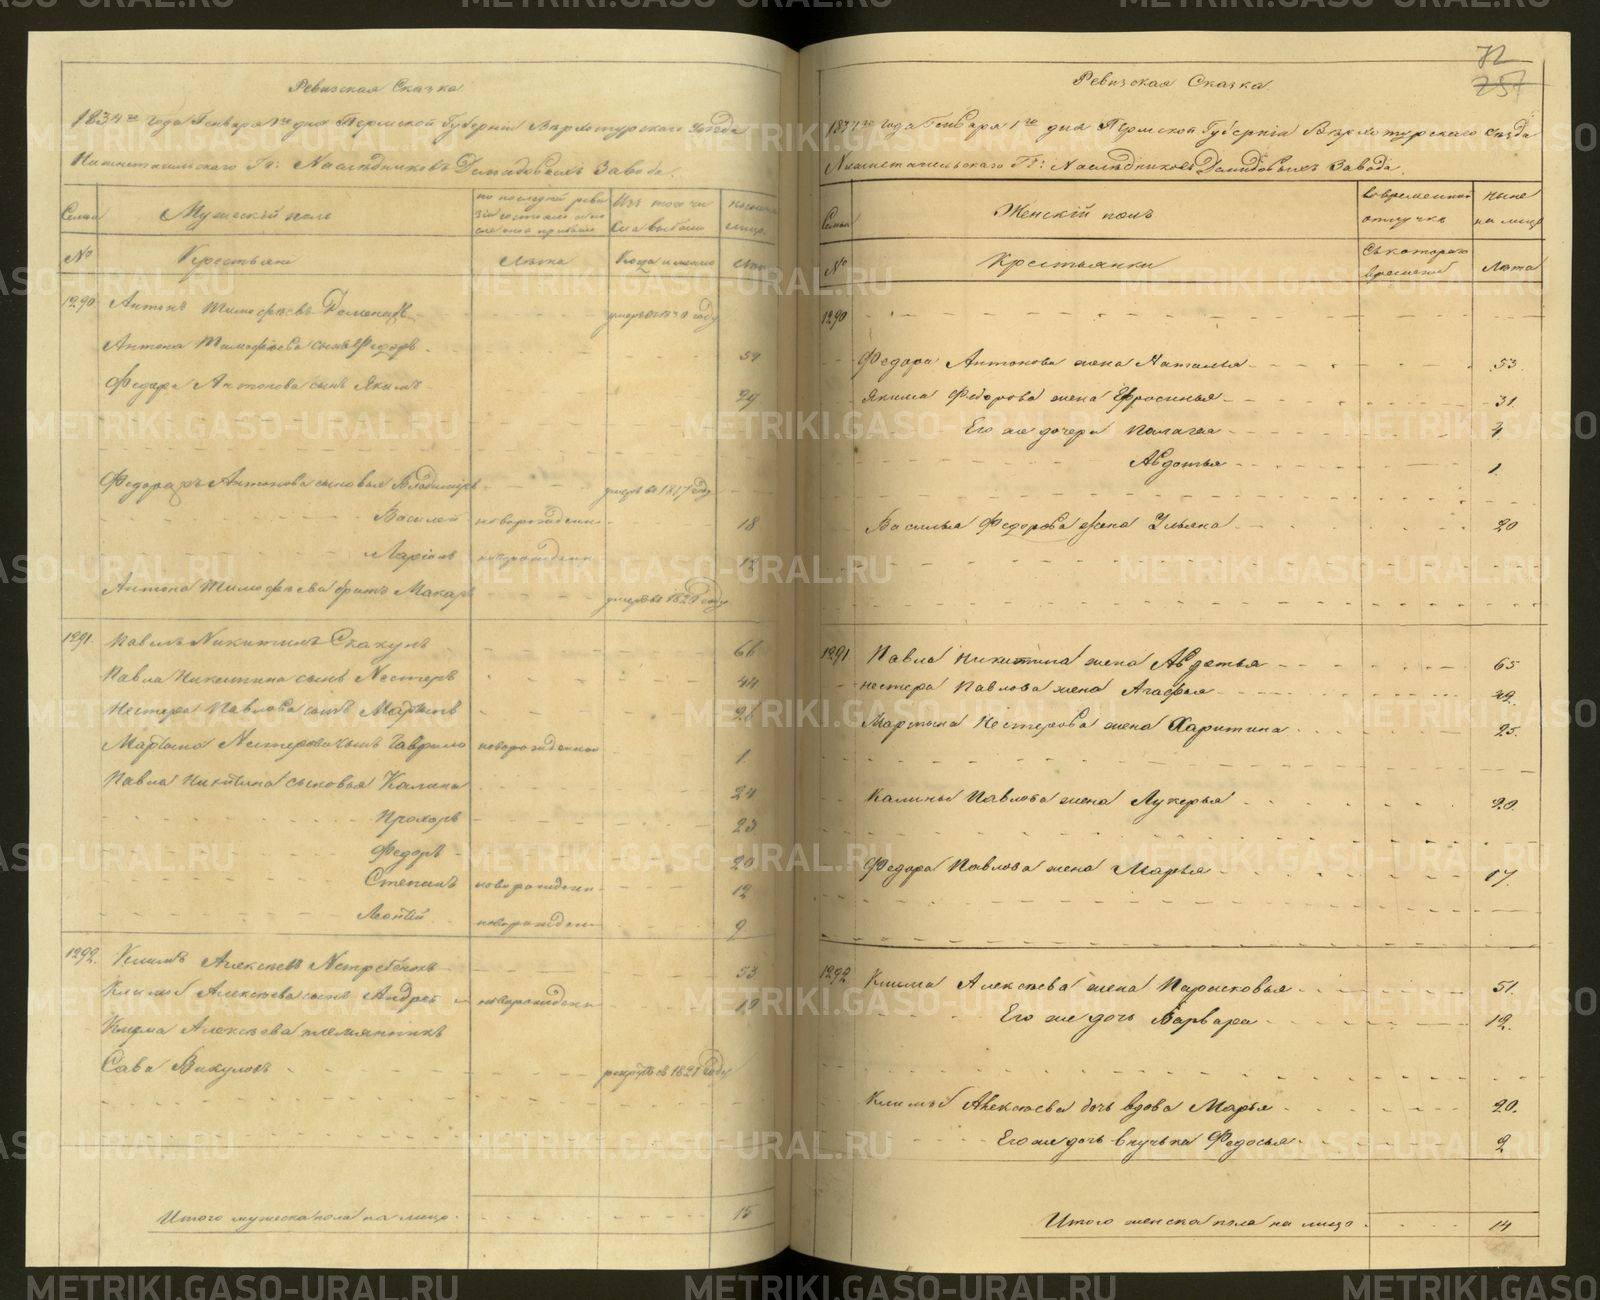 72
257
Ревизская Сказка
1834го года Генваря 1го дня Пермской Губернiи Верхотурского Уезда
Нижнетагильского Гг: Наследниковъ Демидовыхъ Завода.
Семьи Мужескiй полъ
по последней ревизiи состояло и после оной прибыло
Изъ того числа выбыло
ныне на лицо
№ Крестьяне Лета Когда именно Лета
1290 Антонъ Тимофеевъ умеръ въ 1830 году
Антона Тимофеева сынъ Федоръ 54
Федора Антонова сынъ Якимъ 29
Федора Антонова сыновья Владимиръ умеръ въ 1817 году
Василей новорожден 18
Ларiонъ новорожден 12
Антона Тимофеева братъ Макаръ умеръ въ году
1291. Павелъ Никитинъ Скакунъ 66
Павла Никитина сынъ Нестеръ 44
Нестера Павлова сынъ Мартынъ 26
Мартына Нестерова сынъ Гаврило новорожденной 1
Павла Никитина сыновья Калина 24
Прохоръ 23
Федоръ 20
Степанъ новорожден 12
Леонтiй новорожден 9
1292. Климъ Алексеевъ Ястребенокъ 53
Климы Алексеева сынъ Андрей новорожден 19
Клима Алексеева племянникъ
Сава Викуловъ рекрутъ въ 1821 году
Итого мужеска пола на лицо 15
Ревизская Сказка
1834го года Генваря 1го дня Пермской Губернiи Верхотурского Уезда
Нижнетагильского Гг: Наследниковъ Демидовыхъ Завода.
Семьи Женскiй полъ
во временной отлучке
ныне на лицо
№ Крестьянки Съ котораго времени Лета
1290
Федора Антонова жена Наталья 53
Якима Федорова жена Ефросинья 31
Его же дочери Палагея 4
Авдотья 1
Василья Федорова жена Ульяна 20
1291 Павла Никитина жена Авдотья 65
Нестера Павлова жена Агафья 42
Мартына Нестерова жена Харитина 25.
Калины Павлова жена Лукерья 20
Федора Павлова жена Марья 17.
1292 Клима Алексеева жена Парасковья 51.
Его же дочь Варвара 12.
Климы Алексеева дочь вдова Марья 20.
Его же дочь внучька Федосья 2
Итого женска пола на лицо 14
METRIKI.GASO-URAL.RU